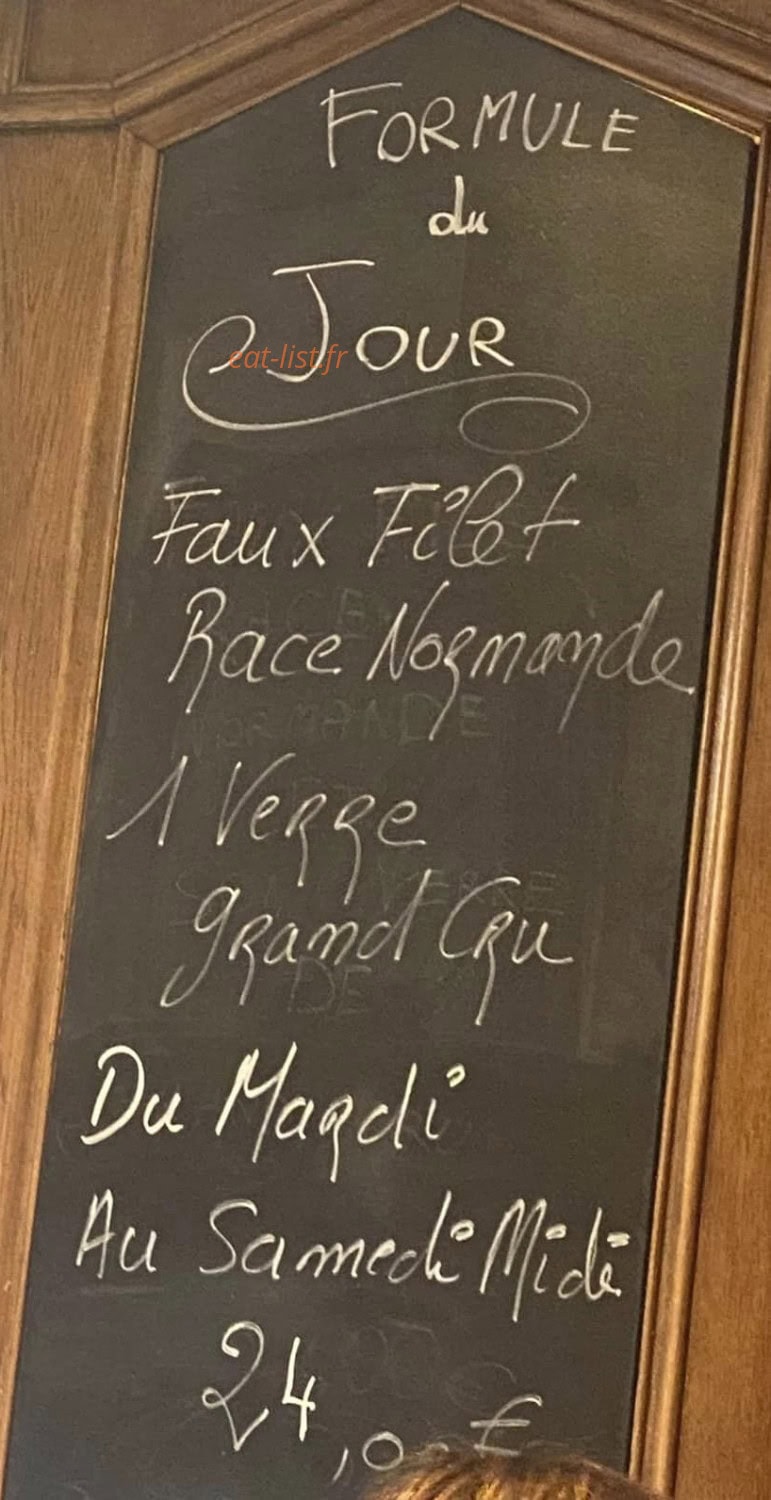 FORMULE
du
JOUR
eat-list.fr
Faux Filet
Race Normande
1 Verre
grand Cru
Du Mardi
Au Samedi Midi
24,0 €